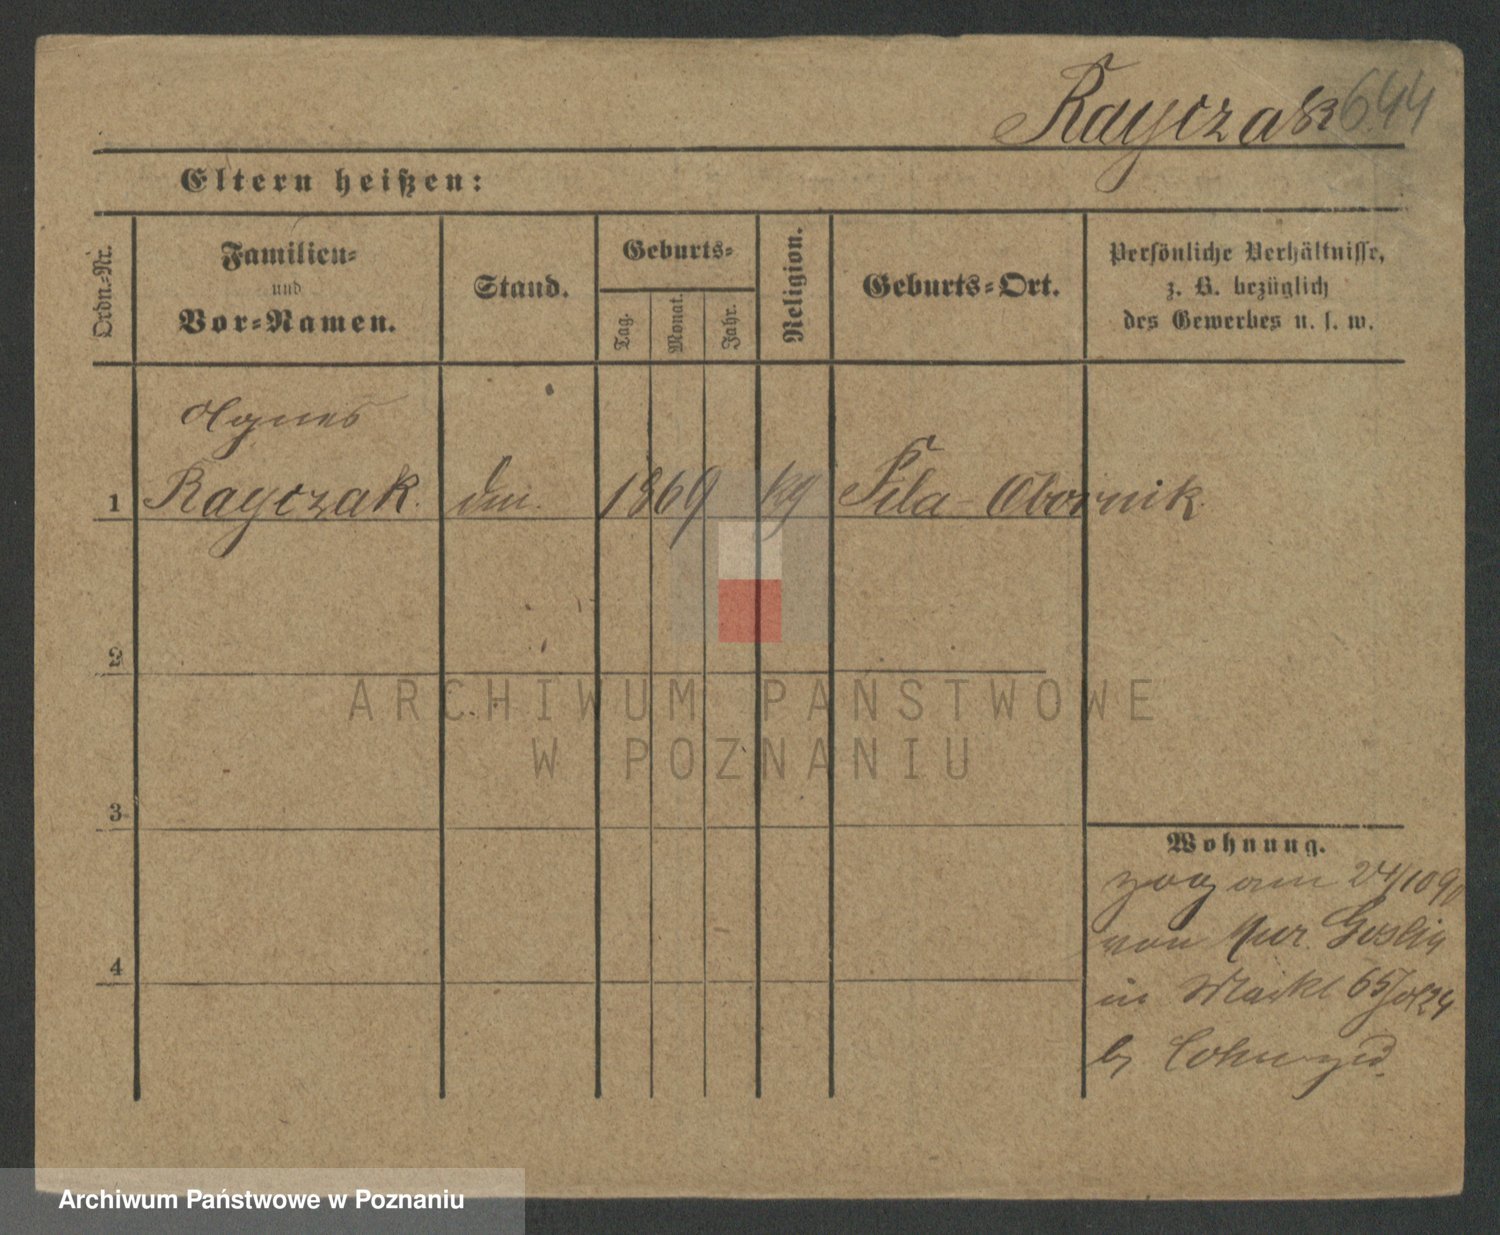 Rayczak 644
Eltern heißen:
Ordn.-Nr.
Familien-
und
Vor-Namen.
Stand.
Geburts-
Tag.
Monat.
Jahr.
Religion.
Geburts-Ort.
Persönliche Verhältnisse,
z. B. bezüglich
des Gewerbes u. s. w.
Agnes
1 Rayczak. 1869 kg Obornik
2
ARCHIWUM PAŃSTWOWE
W POZNANIU
3
Wohnung.
zog am 24/10 90
von Mur. Goslin
4
in Markt 65
b/
Archiwum Państwowe w Poznaniu